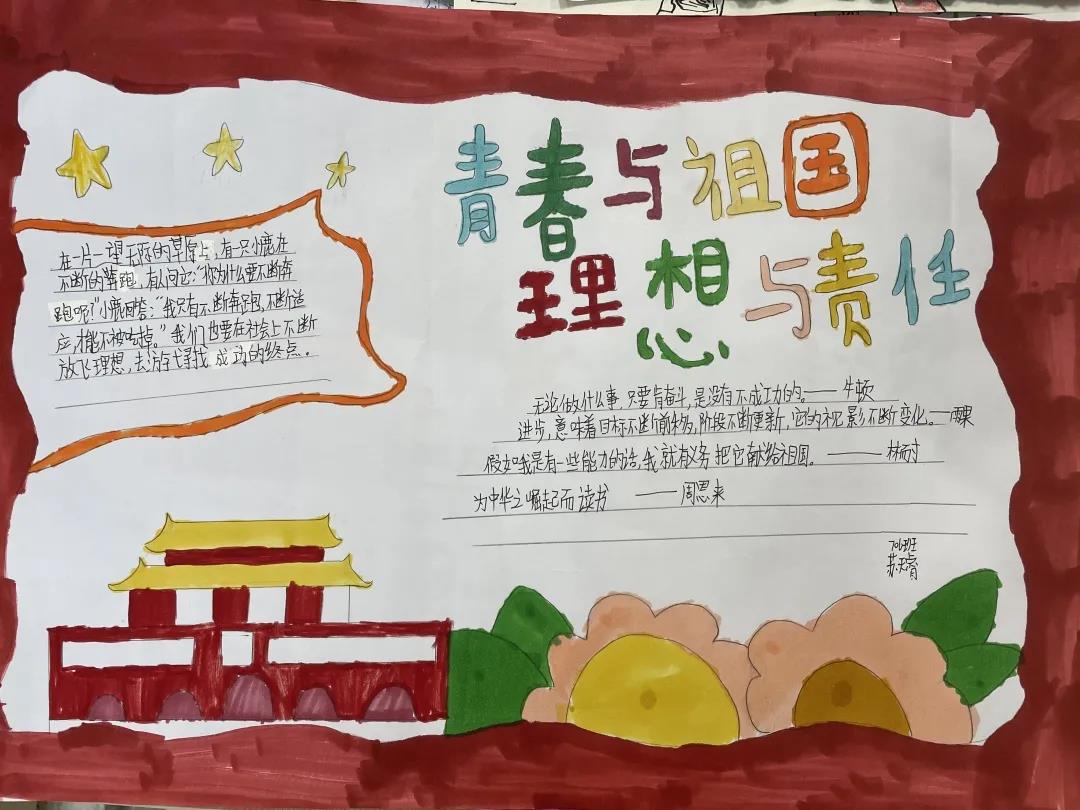 青春与祖国
理想与责任
在一片一望无际的草原上,有一只小鹿在
不断的奔跑,有人问它:“你为什么要不断奔
跑呢?”小鹿回答:“我只有不断奔跑,不断适
应,才能不被吃掉。”我们也要在社会上不断
放飞理想,去 寻找 成功的终点。
无论做什么事,只要肯奋斗,是没有不成功的。——牛顿
进步,意味着目标不断前移,阶段不断更新,它的视影不断变化。——雨果
假如我是有一些能力的话,我就有义务把它献给祖国。——林耐
为中华之崛起而读书 ——周恩来
706班
苏 睿